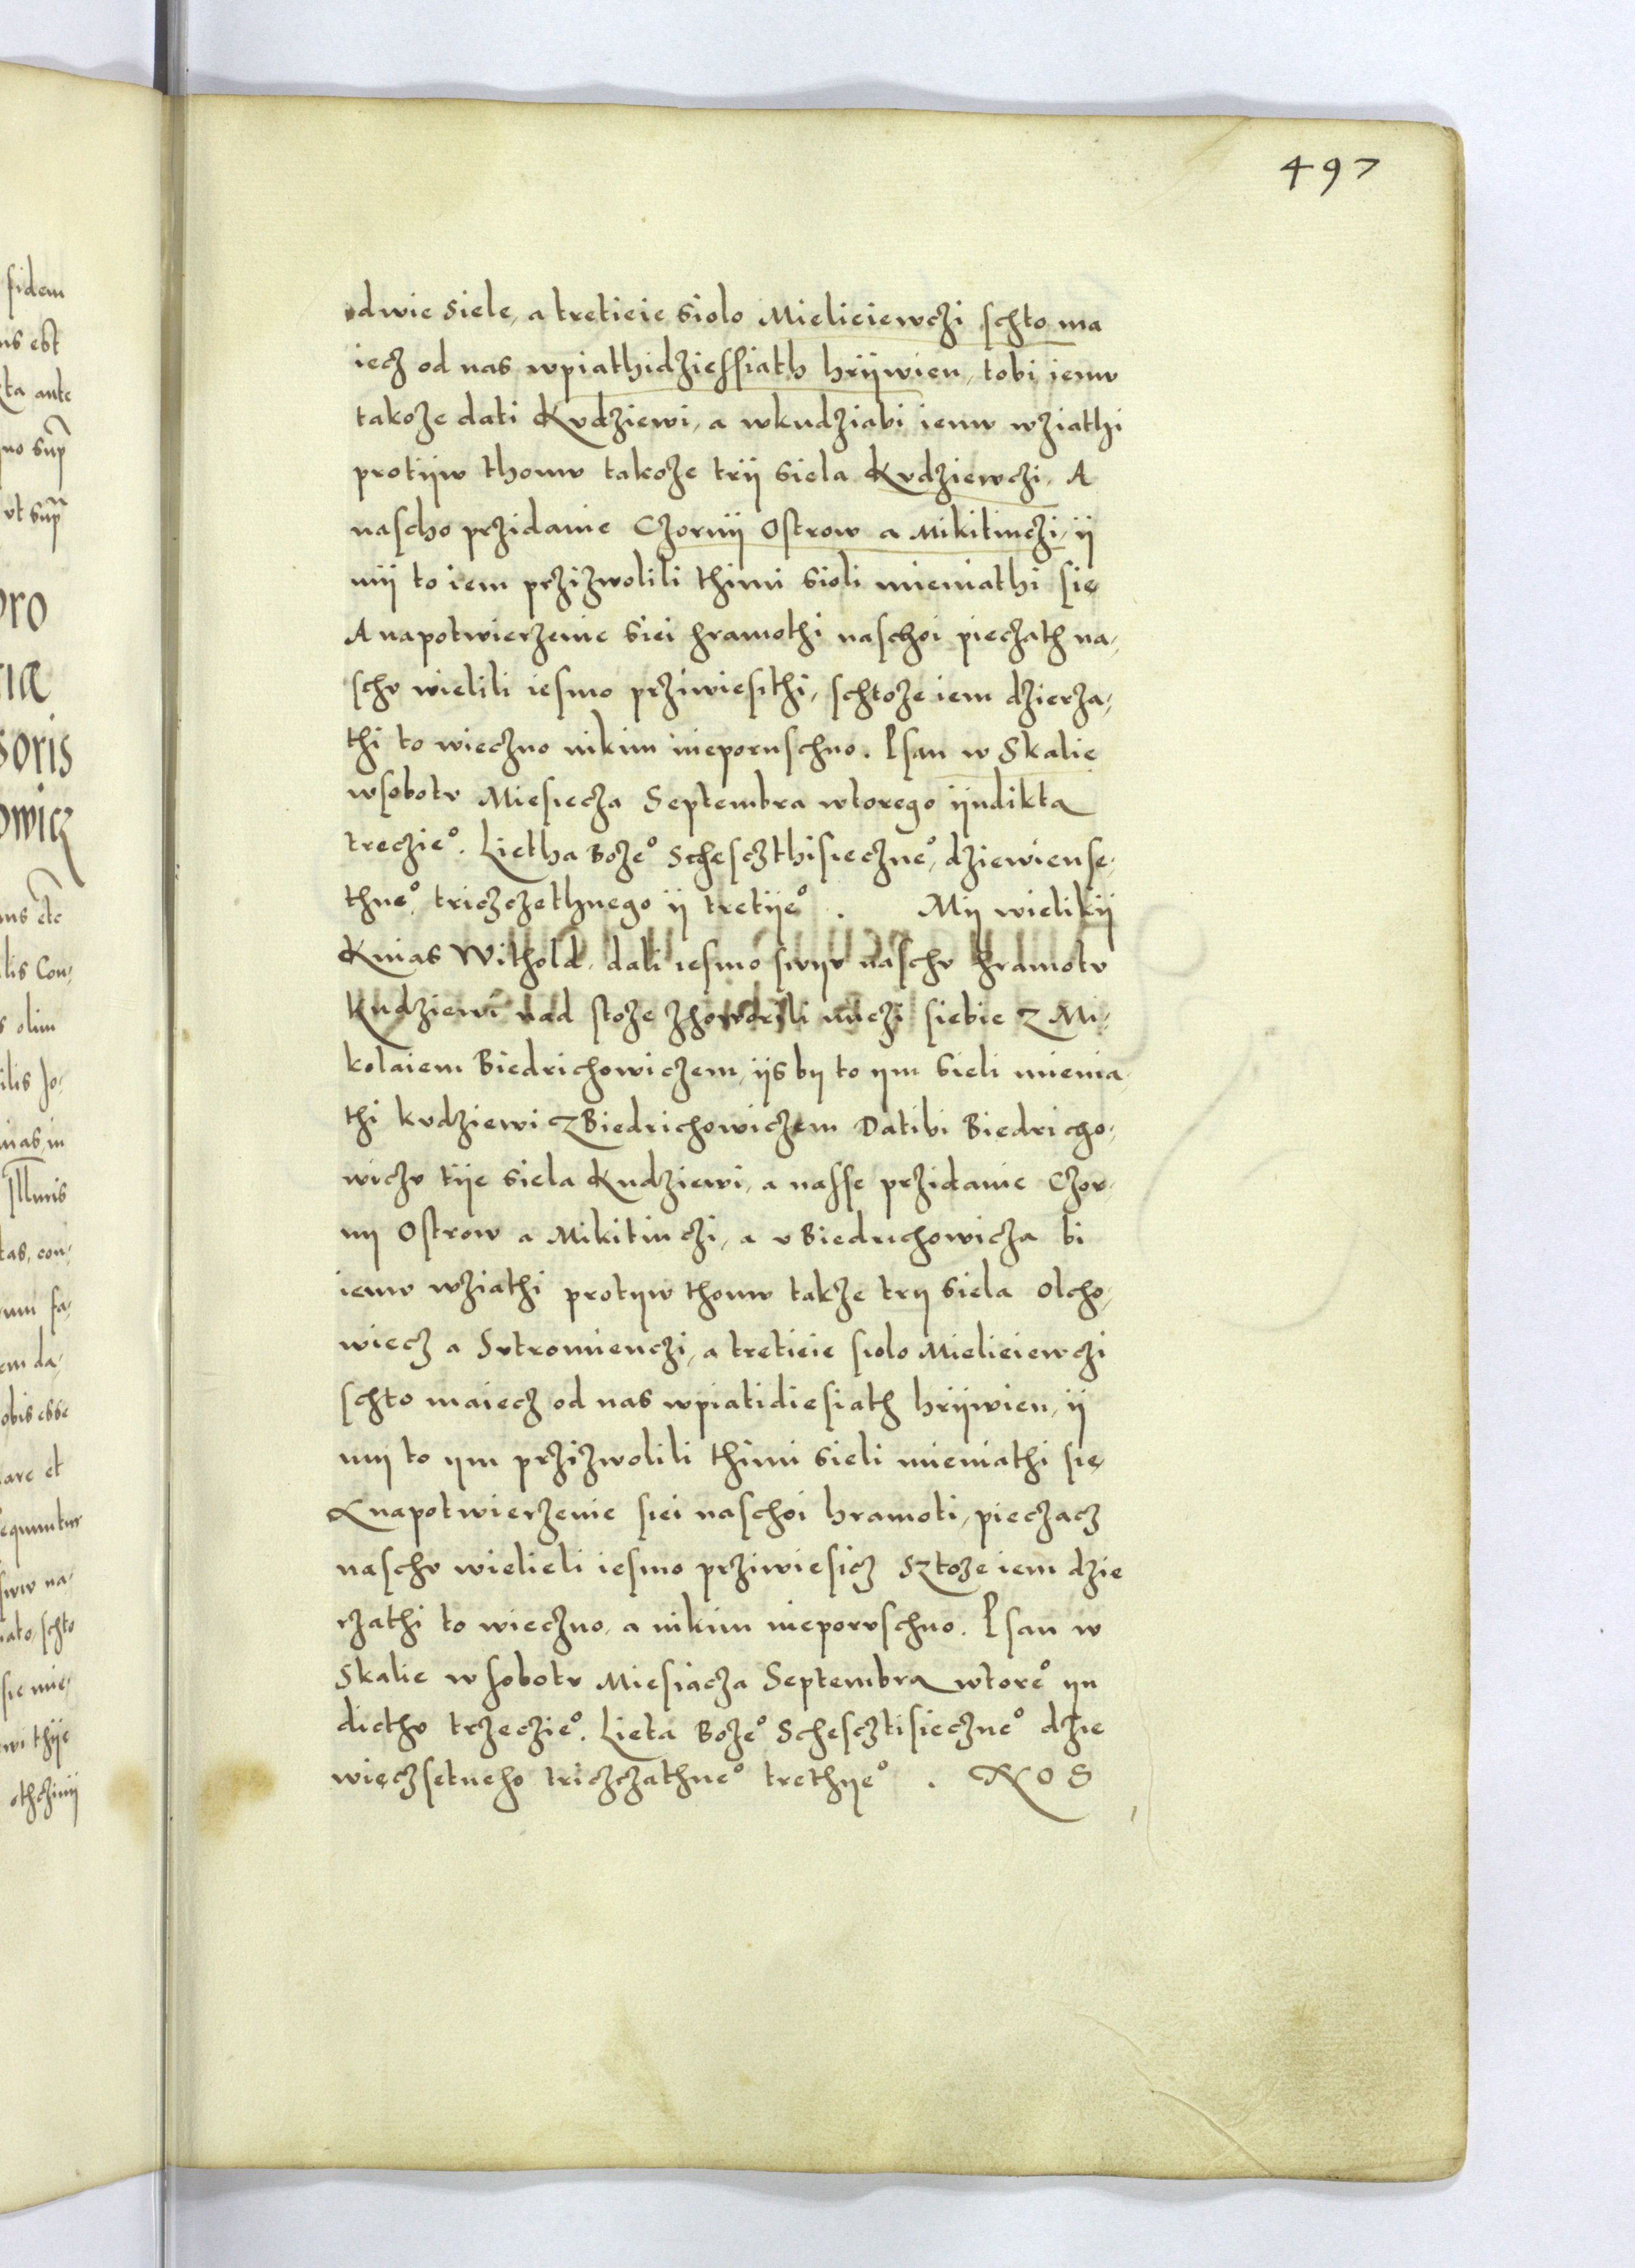 497
dwie siele, a tretieie siolo Mielieiewczi schto ma
iecz od nas wpiathidziessiath hrijwien, tobi iemv
takoze dati Kvdziewi, a wkudziabi iemv wziathi
protijw thomv takoze trij siela Kvdziewczi, A
nascho przidanie Czornij Ostrow a Mikitinczi, ij
mij to iem przizwolili thimi sioli mieniathi się
A napotwierzenie siei hramothi naschoi pieczath na,
schv wielili iesmo prziwiesithi, schtoze iem dzierza,
thi to wieczno nikim nieporuschno. Psan w Skalie
wsobotv Miesiecza Septembra wtorego ijndikta
treczie°. Lietha Boze° Schesczthisieczne°, dziewiense,
thne° triczczethnego ij tretije°. Mij wielikij
Knias Withold, dali iesmo swijv naschv hramotv
Kudziewi nad stoze zhoworili miczi siebie z Mi,
kolaiem Biedrichowiczem, ijs bij to ijm sieli mienia,
thi kvdziewi z Biedrichowiczem Datibi Biedricho,
wiczv tije siela Kudziewi, a nasse przidanie Czor,
nij Ostrow a Mikitinczi, a v Biedrichowicza bi
iemv wziathi protijw thomv takze trij siela Olcho,
wiecz a Sutromienczi, a tretieie siolo Mielieiewczi
schto maiecz od nas wpiatidiesiath hrijwien, ij
mij to ijm przizwolili thimi sieli mieniathi się
A napotwierzenie siei naschoi hramoti, pieczacz
naschv wielieli iesmo prziwiesicz Sztoze iem dzie
rzathi to wieczno, a nikim nieporvschno. Psan w
Skalie w sobotv Miesiacza Septembra wtore° ijn
dicthv trzeczie°. Lieta Boze° Schescztisieczne° dzie
więczsetneho triczczathne° trethije°. NOS